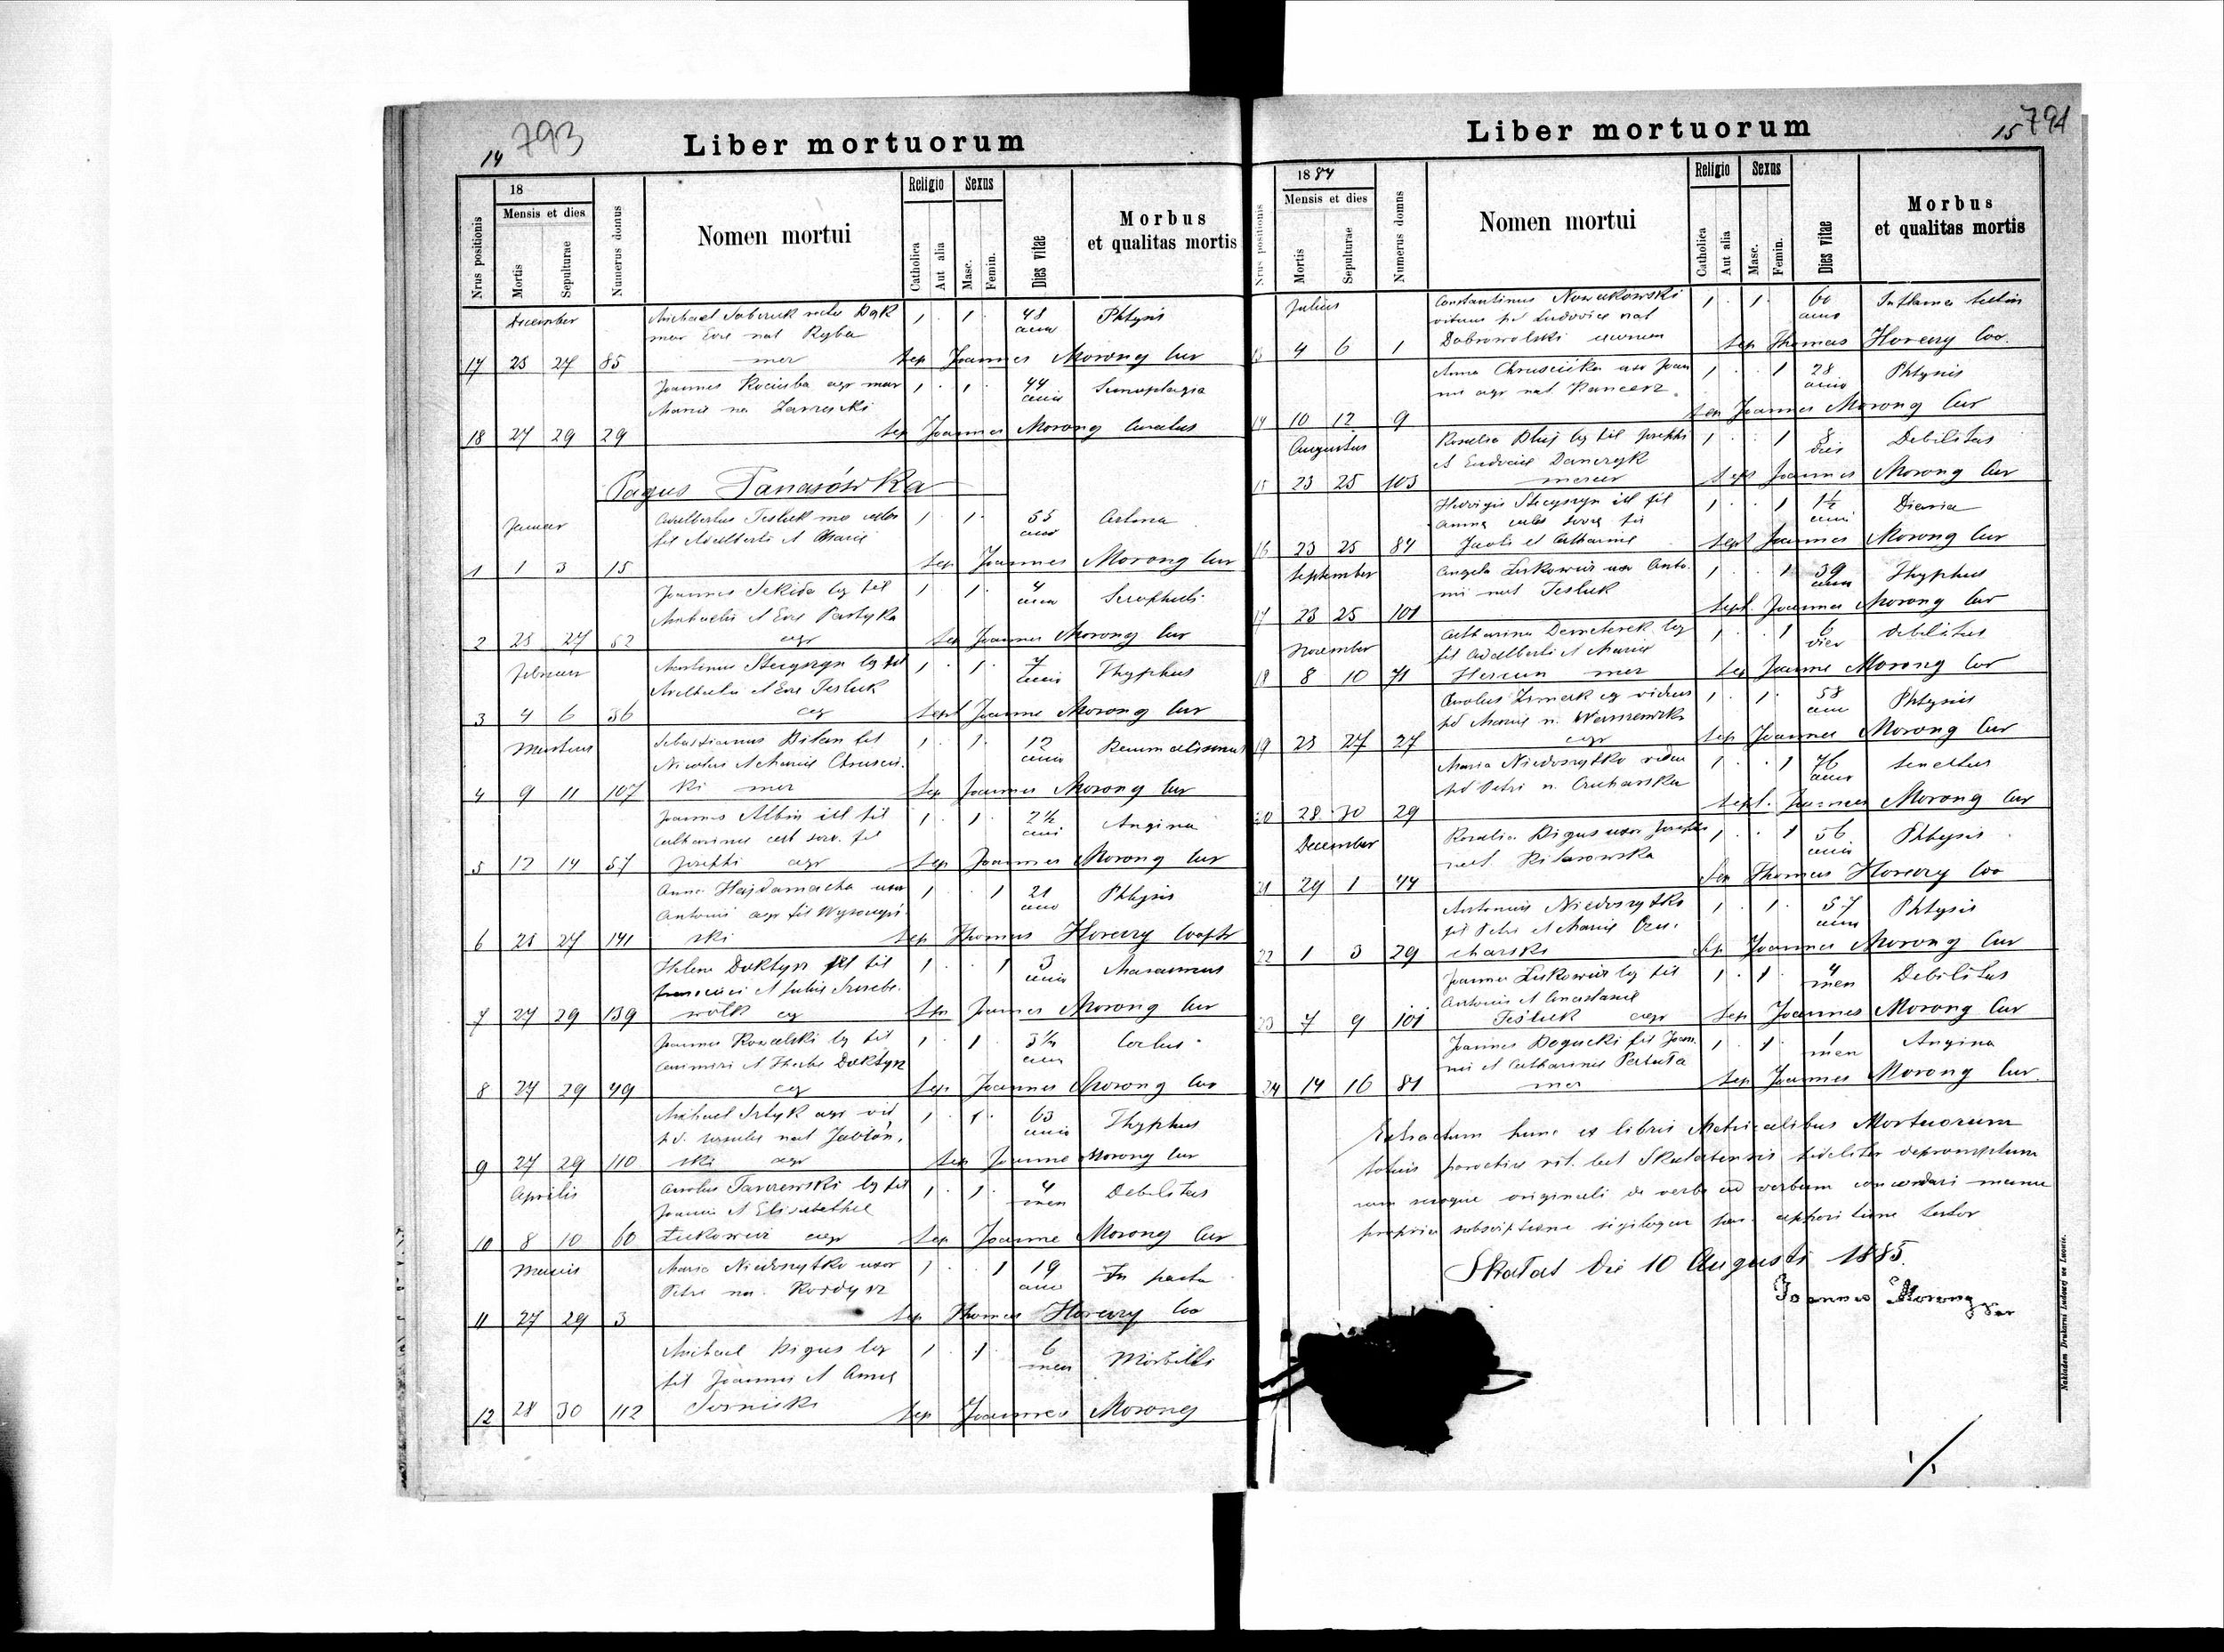 14 793
Liber mortuorum
Nrus positionis
18
Mensis et dies
Mortis
Sepulturae
Numerus domus
Nomen mortui
Religio
Catholica
Aut alia
Sexus
Masc.
Femin.
Dies vitae
Morbus
et qualitas mortis
December
Michael
mar Eve nat Ryba
mer
17 25 27 85 1 1 48 Phtysis
Sep Joannes Morong Cur
Joannes Kociuba agr mar
Marie
18 27 29 29 1 1 44
Sep Joannes Morong Curatus
Pagus Panasówka
Januar
Adalbertus Tesluk
fil Adalberti et Marie
1 1 3 15 1 1 55 Astma
Sep Joannes Morong Cur
Joannes Sekida leg fil
Michaelis et Eve Partyka
agr
2 25 27 52 1 1 4
Sep Joannes Morong Cur
Februar
Martinus Stecyszyn leg fil
Adalberti et Eve Tesluk
agr
3 4 6 36 1 1 7 Thyphus
Sept Joannes Morong Cur
Martius
Sebastianus Bilan fil
Nicolai et Marie Chrusciń
ski mer
4 9 11 107 1 1 12 Reumatismus
Sep Joannes Morong Cur
Joannes Albin ill fil
Catharine celt serv. fil
Josephi agr
5 12 14 57 1 1 2½ Angina
Sep Joannes Morong Cur
Anna Hajdamacha uxor
Antonii agr fil Wysoczyń
ski
6 25 27 141 1 1 21 Phtysis
Sep Thomas Horeczy Cooptr
Helena Doktysz fil
Francisci et Julie
wolk ag
7 27 29 139 1 1 3 Marasmus
Sep Joannes Morong Cur
Joannes Kowalski leg fil
Casimiri et Thecle Doktysz
ag
8 27 29 49 1 1 3½
Sep Joannes Morong Cur
Michael agr vid
p d. Ursule nat Jabłoń
ski agr
9 27 29 110 1 1 63 Thyphus
Sep Joannes Morong Cur
Aprilis
Carolus Tarczewski leg fil
Joannis et Elisabethae
Łukowicz agr
10 8 10 60 1 1 4 men Debilitas
Sep Joannes Morong Cur
Maius
Maria Niedoszytko uxor
Petri na. Kordysz
11 27 29 3 1 1 19 In partu
Sep Thomas Horeczy Coo
Michael Pigus leg
fil Joannis et Anne
12 28 30 112 1 1 6 men Morbilli
Sep Joannes Morong
15 794
Liber mortuorum
Nrus positionis
1884
Mensis et dies
Mortis
Sepulturae
Numerus domus
Nomen mortui
Religio
Catholica
Aut alia
Sexus
Masc.
Femin.
Dies vitae
Morbus
et qualitas mortis
Julius
Constantinus Nowakowski
viduus pd Ludovice nat
Dobrowolski
13 4 6 1 1 1 60
Sep Thomas Horeczy Coo.
Anna Chruścicka uxr Joan
nis agr nat. Pancerz
14 10 12 9 1 1 28 Phtysis
Sep Joannes Morong Cur
Augustus
Rosalia Pluj leg fil Josephi
et Eudocie Danczyk
15 23 25 103 1 1 8 dies Debilitas
Sept Joannes Morong Cur
Hedvigis Stecyszyn ill fil
Anna celt serva fil
Jacobi et Catharine
16 23 25 84 1 1 1½
Sept Joannes Morong Cur
September
Angela Łukowicz uxr Anto
nii nat Tesluk
17 23 25 101 1 1 39 Thyphus
Sept. Joannes Morong Cur
November
Catharina Demeterek leg
fil Adalberti et Marie
mer
18 8 10 71 1 1 6 dies Debilitas
Sep Joannes Morong Cur
Carolus ag viduus
pd Marie n. Warszewska
agr
19 25 27 27 1 1 58 Phtysis
Sep Joannes Morong Cur
Maria Niedoszytko vidua
pd Petri n. Crucharska
20 28 30 29 1 1 76 Senectus
Sept. Joannes Morong Cur
December
Rosalia Pigus uxor Josephi
nat.
21 29 1 44 1 1 56 Phtysis
Sep Thomas Horeczy Coo
Antonius Niedoszytko
fil Petri et Marie Cru
charski
22 1 3 29 1 1 57 Phtysis
Sep Joannes Morong Cur
Joannes Łukowicz leg fil
Antonii et Anastasie
Teśluk agr
23 7 9 101 1 1 4 men Debilitas
Sep Joannes Morong Cur
Joannes Dogucki fil Joan
nis et Catharine Patuła
mer
24 14 16 81 1 1 1 men Angina
Sep Joannes Morong Cur.
Extractum hunc ex libris Metricalibus Mortuorum
totius parochie rit. lat Skalatensis fideliter depromptum
cum suoque originali de verbo ad verbum concordari manu
propria subscriptione sigilique par. appositione testor
Skałat die 10 Augusti 1885.
Joannes Morong
Nakładem Drukarni Ludowej we Lwowie.